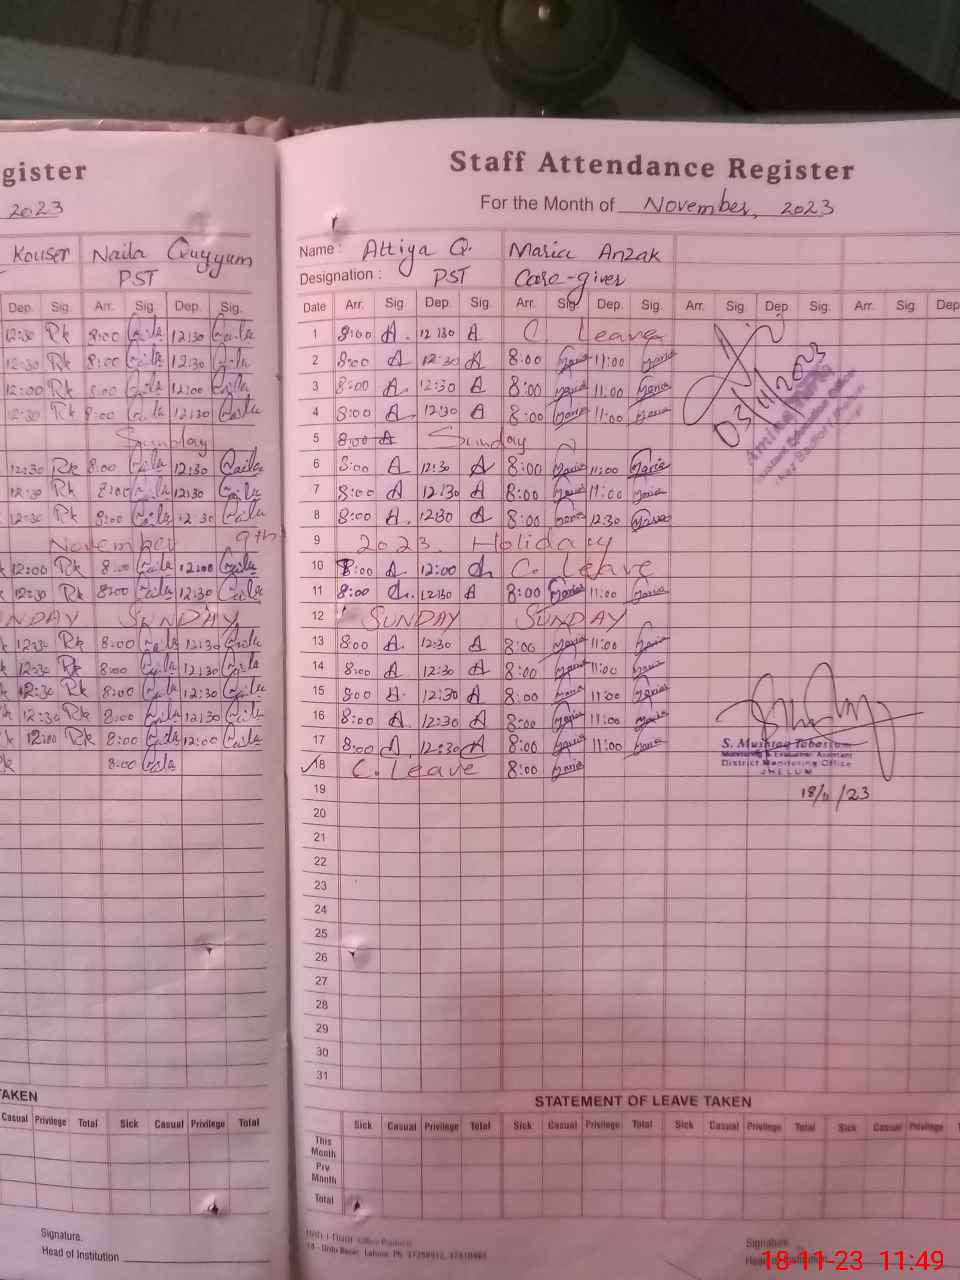 gister
2023
Kouser Naila Quyyum
PST
Dep. Sig. Arr. Sig. Dep. Sig.
12:30 Rk 8:00 Gaila 12:30 Gaila
12:30 Rk 8:00 Gaila 12:30 Gaila
12:00 Rk 8:00 Gaila 12:00 Gaila
12:30 Rk 8:00 Gaila 12:30 Gaila
Sunday
12:30 Rk 8:00 Gaila 12:30 Gaila
12:30 Rk 8:00 Gaila 12:30 Gaila
12:30 Rk 8:00 Gaila 12:30 Gaila
November 9th
12:00 Rk 8:00 Gaila 12:00 Gaila
12:30 Rk 8:00 Gaila 12:30 Gaila
NDAY SUNDAY
12:30 Rk 8:00 Gaila 12:30 Gaila
12:30 Rk 8:00 Gaila 12:30 Gaila
12:30 Rk 8:00 Gaila 12:30 Gaila
12:30 Rk 8:00 Gaila 12:30 Gaila
12:00 Rk 8:00 Gaila 12:00 Gaila
8:00 Gaila
TAKEN
Casual Privilege Total Sick Casual Privilege Total
Signature.
Head of Institution
Staff Attendance Register
For the Month of November, 2023
Name : Attiya Q. Maria Anzak
Designation : PST Care-giver
Date Arr. Sig. Dep. Sig. Arr. Sig. Dep. Sig. Arr. Sig. Dep. Sig. Arr. Sig. Dep
1 8:00 A. 12:30 A C. Leave
2 8:00 A 12:30 A 8:00 Maria 11:00 Maria
3 8:00 A. 12:30 A 8:00 Maria 11:00 Maria
4 8:00 A. 12:30 A 8:00 Maria 11:00 Maria
5 8:00 A Sunday
6 8:00 A 12:30 A 8:00 Maria 11:00 Maria
7 8:00 A 12:30 A 8:00 Maria 11:00 Maria
8 8:00 A. 12:30 A 8:00 Maria 12:30 Maria
9 2023. Holiday
10 8:00 A. 12:00 A C. Leave
11 8:00 A. 12:30 A 8:00 Maria 11:00 Maria
12 SUNDAY SUNDAY
13 8:00 A. 12:30 A 8:00 Maria 11:00 Maria
14 8:00 A. 12:30 A 8:00 Maria 11:00 Maria
15 8:00 A. 12:30 A 8:00 Maria 11:00 Maria
16 8:00 A. 12:30 A 8:00 Maria 11:00 Maria
17 8:00 A. 12:30 A 8:00 Maria 11:00 Maria
18 C. Leave 8:00 Maria
19
20
21
22
23
24
25
26
27
28
29
30
31
03/11/2023
S. Mushtaq Tabassum
Monitoring & Evaluation Assistant
District Monitoring Office
JHELUM
18/11/23
STATEMENT OF LEAVE TAKEN
Sick Casual Privilege Total Sick Casual Privilege Total Sick Casual Privilege Total Sick Casual Privilege T
This Month
Prv Month
Total
Office Products
Urdu Bazar, Lahore. Ph:
Signature.
Head of Institution
18-11-23 11:49